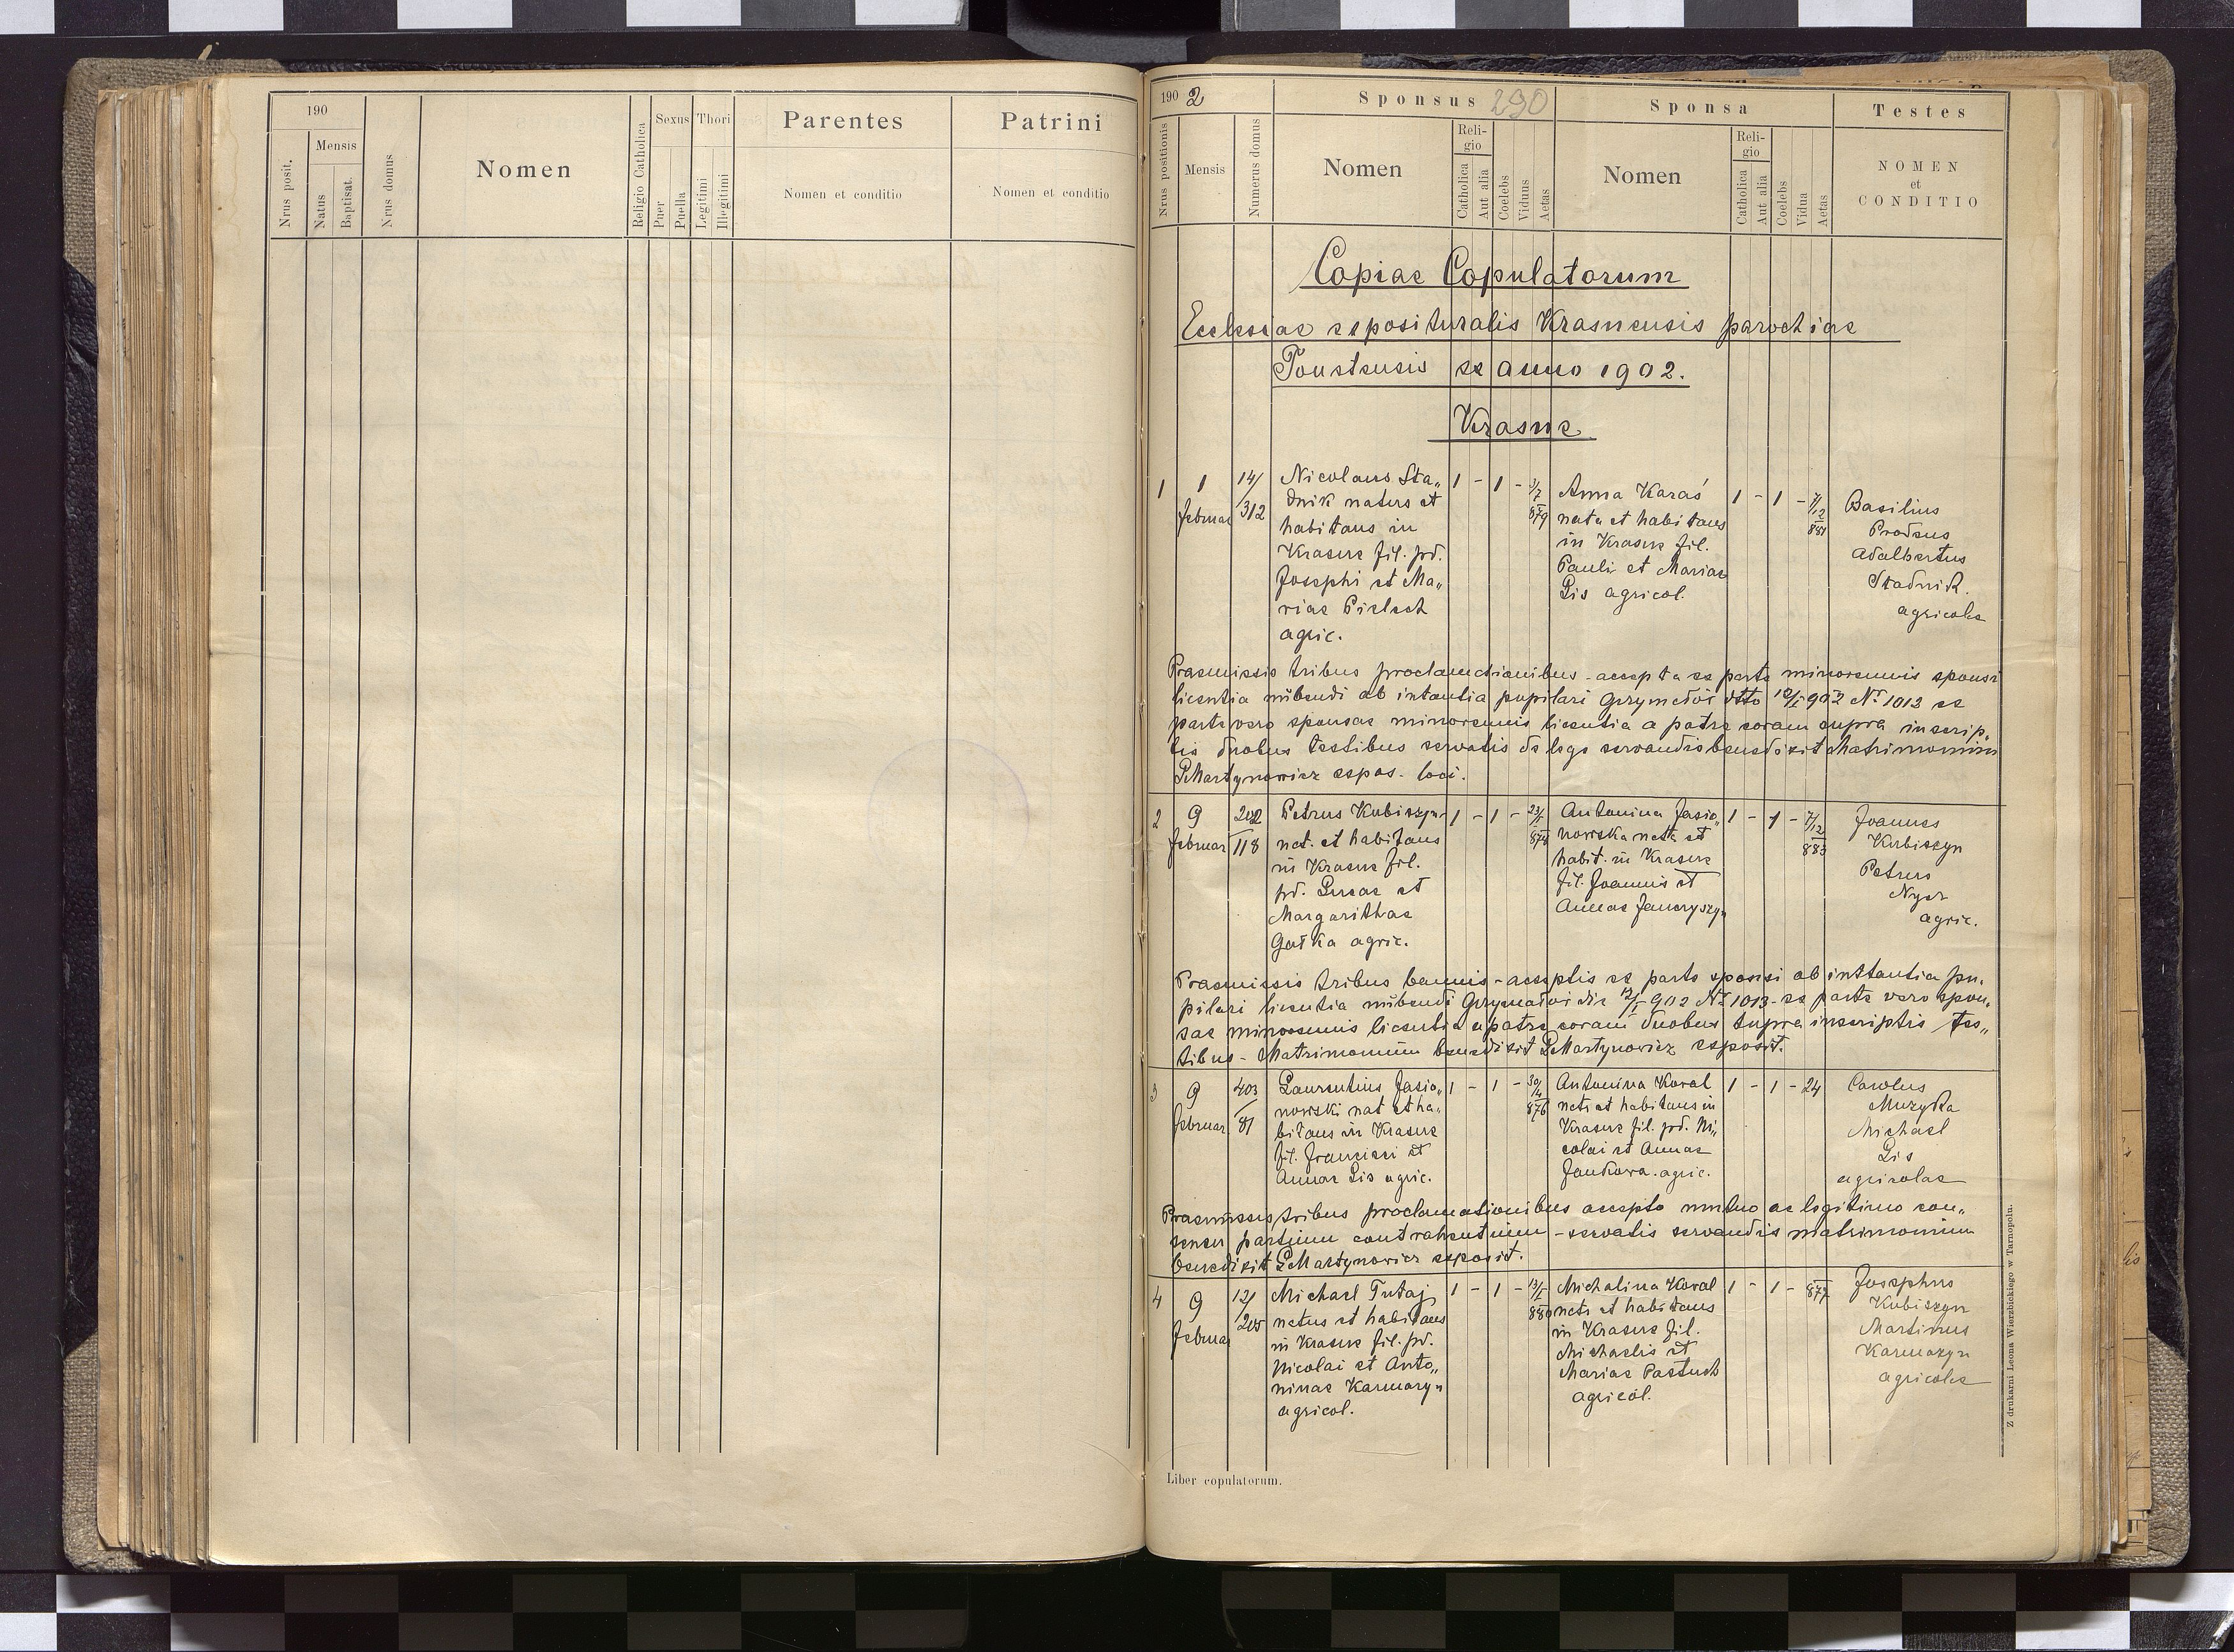 190
Mensis
Nrus posit.
Natus
Baptisat.
Nrus domus
Nomen
Religio Catholica
Sexus
Puer
Puella
Thori
Legitimi
Illegitimi
Parentes
Nomen et conditio
Patrini
Nomen et conditio
1902
Sponsus 290
Sponsa
Testes
Nrus positionis
Mensis
Numerus domus
Nomen
Reli-
gio
Catholica
Aut alia
Coelebs
Viduus
Aetas
Nomen
Reli-
gio
Catholica
Aut alia
Coelebs
Vidua
Aetas
NOMEN
et
CONDITIO
Copiae Copulatorum
Ecclesiae exposituralis Krasnensis parochiae
Toustensis ex anno 1902.
Krasne
1
1
februar
14/
312
Nicolaus Sta„
dnik natus et
habitans in
Krasne fil. pd.
Josephi et Ma„
riae Pielech
agric.
1 - 1 - 3/7
879
Anna Karaś
nata et habitans
in Krasne fil.
Pauli et Mariae
Lis agricol.
1 - 1 - 7/12
881
Basilius
Prodeus
Adalbertus
Stadnik.
agricolae
Praemissis tribus proclamationibus - accepta ex parte minorennis sponsi
licentia nubendi ab intantia pupilari Grzymałów dtto 12/I 902 No 1012 ex
parte vero sponsae minorennis licentia a patre coram supra inscrip„
tis duobus testibus servatis de lege servandis benedixit Matrimonium
P. Martynowicz expos. loci.
2
9
februar
202
118
Petrus Kubiszyn
nat. et habitans
in Krasne fil.
pd. Lucae et
Margarithae
Gałka agric.
1 - 1 - 23/1
878
Antonina Jasio„
nowska nata et
habit. in Krasne
fil. Joannis et
Annae Janczyszyn
1 - 1 - 7/12
883
Joannes
Kubiszyn
Petrus
Nycz
agric.
Praemissis tribus bannis - acceptis ex parte sponsi ab instantia pu„
pilari licentia nubendi Grzymałów die 12/I 902 No 1013 - ex parte vero spon„
sae minorennis licentia a patre coram duobus supra inscriptis tes„
tibus - Matrimonium benedixit P. Martynowicz exposit.
3
9
februar.
403
81
Laurentius Jasio„
nowski nat et ha„
bitans in Krasne
fil. Francisci et
Annae Lis agric.
1 - 1 - 30/4
876
Antonina Kowal
nata et habitans in
Krasne fil. pd. Ni„
colai et Annae
Jankowa. agric.
1 - 1 - 24
Carolus
Muzyka
Michael
Lis
agricolae
Praemissis tribus proclamationibus accepto mutuo ac legitimo con„
sensu partium contrahentium - servatis servandis matrimonium
benedixit P. Martynowicz exposit.
4
9
februar
12/
205
Michael Tutaj
natus et habitans
in Krasne fil. pd.
Nicolai et Anto„
ninae Karmazyn
agricol.
1 - 1 - 13/1
880
Michalina Kowal
nata et habitans
in Krasne fil.
Michaelis et
Mariae Pastuch
agricol.
1 - 1 - 877
Josephus
Kubiszyn
Martinus
Karmazyn
agricolae
Liber copulatorum.
Z drukarni Leona Wierzbickiego w Tarnopolu.